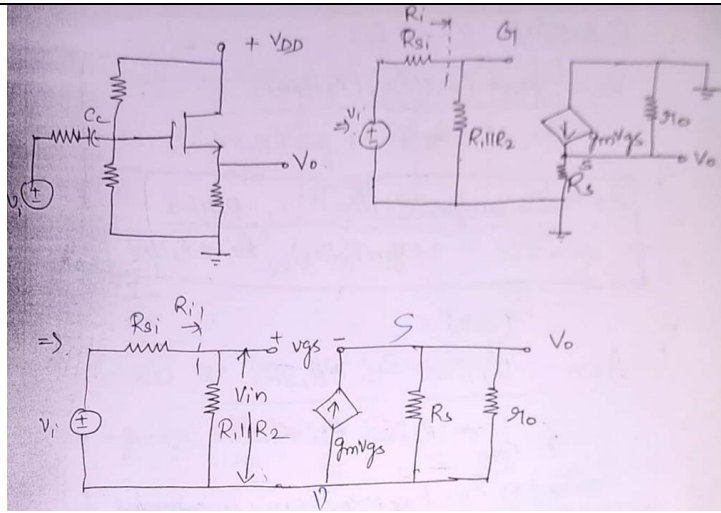 + VDD
Cc
Vo
vi
Ri
Rsi
G
vi
R1||R2
gmvgs
ro
S
Rs
Vo
=>
Rsi
Ri1
+ vgs -
S
Vo
vi
Vin
R1||R2
gmvgs
Rs
ro
D